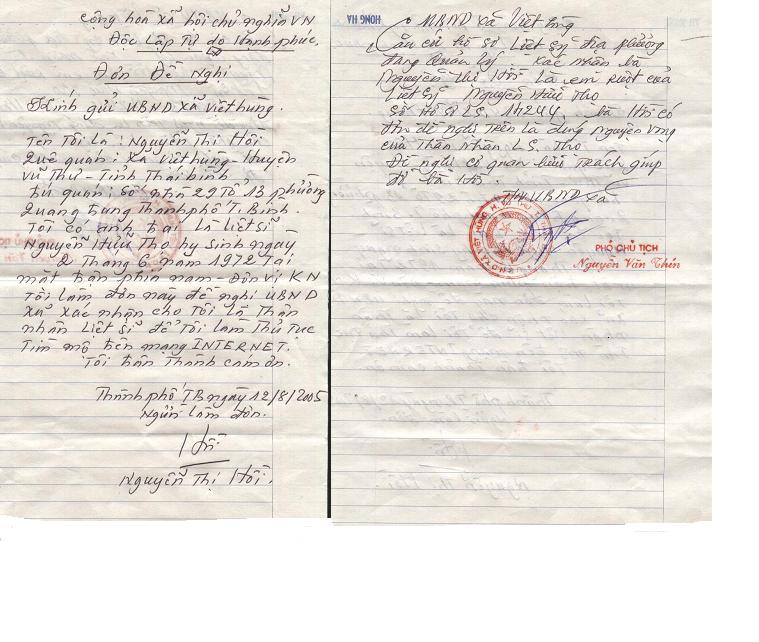 Cộng hoà xã hội chủ nghĩa VN
Độc Lập Tự do Hạnh phúc.
Đơn Đề Nghị
Kính gửi UBND xã việt hùng.
Tên Tôi Là: Nguyễn Thị Hôi
Quê quán: Xã việt hùng - Huyện
vũ Thư - Tỉnh Thái bình
trú quán: số nhà 29 Tổ 13 phường
Quang trung Thành phố T. Bình.
Tôi có anh trai Là Liệt sĩ
Nguyễn Hữu Thọ hy sinh ngày
2 Tháng 6 năm 1972 Tại
mặt trận phía nam - Đơn vị KN
Tôi Làm đơn này đề nghị UBND
xã xác nhận cho Tôi Là Thân
nhân Liệt sĩ để Tôi Làm Thủ Tục
Tìm mộ trên mạng INTERNET.
Tôi trân Thành cảm ơn.
Thành phố TB ngày 12/8/2005
Người Làm đơn.
Hôi
Nguyễn Thị Hôi.
HONG HA
UBND xã Việt Hùng
Căn cứ hồ sơ Liệt sỹ địa phương
đang quản lý - xác nhận bà
Nguyễn Thị Hôi Là em ruột của
Liệt sỹ Nguyễn Hữu Thọ
Số Hồ sơ LS. 14244. bà Hôi có
đơn đề nghị Trên là đúng nguyện vọng
của Thân Nhân LS. Thọ
Đề nghị cơ quan hữu Trách giúp
đỡ bà Hôi.
TM UBND xã
PHÓ CHỦ TỊCH
Nguyễn Văn Thìn